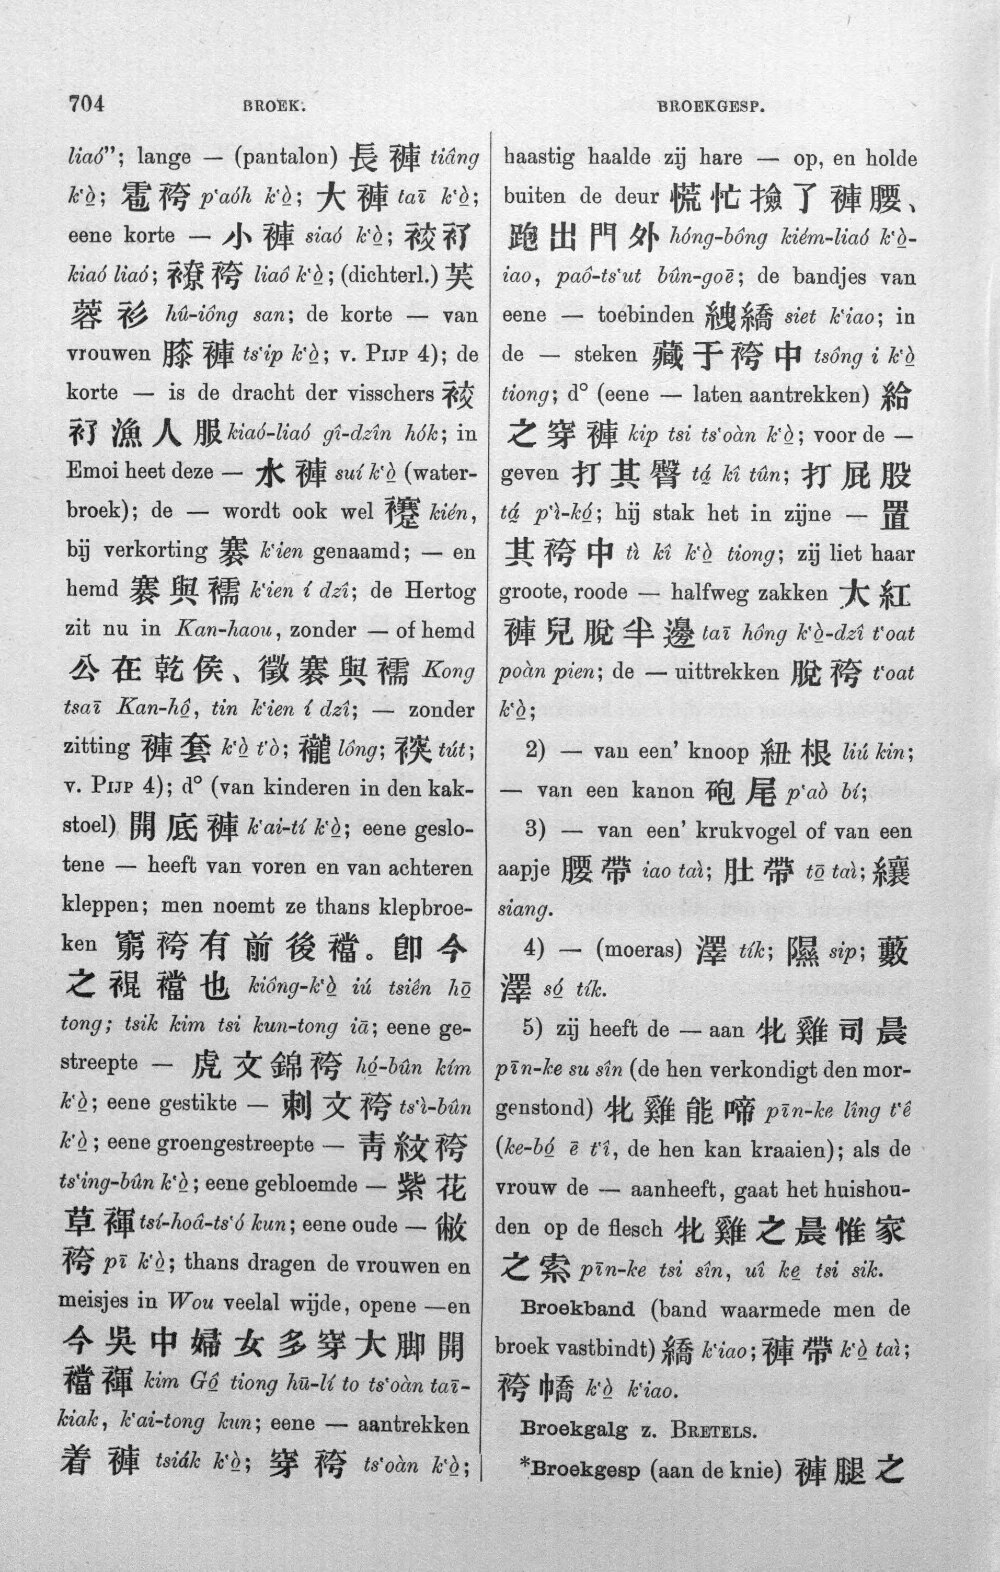 704
BROEK.
BROEKGESP.
liaó”; lange — (pantalon) 長褲 tiâng
k‘ò̤; 雹袴 p‘aóh k‘ò̤; 大褲 taī k‘ò̤;
eene korte — 小褲 siaó k‘ò̤; 袯
kiaó liaó; 袴 liaô k‘ò̤; (dichterl.) 芙
蓉衫 hû-iông san; de korte — van
vrouwen 膝褲 ts‘ip k‘ò̤; v. PIJP 4); de
korte — is de dracht der visschers
漁人服 kiaó-liaó gî-dzîn hók; in
Emoi heet deze — 水褲 suí k‘ò̤ (water-
broek); de — wordt ook wel kién,
bij verkorting 褰 k‘ien genaamd; — en
hemd 褰與襦 k‘ien í dzî; de Hertog
zit nu in Kan-haou, zonder — of hemd
公在乾侯、徵褰與襦 Kong
tsaī Kan-hô̤, tin k‘ien í dzî; — zonder
zitting 褲套 k‘ò̤ t‘ò; 襱 lông; tút;
v. PIJP 4); d° (van kinderen in den kak-
stoel) 開底褲 k‘ai-tí k‘ò̤; eene geslo-
tene — heeft van voren en van achteren
kleppen; men noemt ze thans klepbroe-
ken 窮袴有前後襠。卽今
之裩襠也 kiông-k‘ò̤ iú tsiên hō̤
tong; tsik kim tsi kun-tong iā; eene ge-
streepte — 虎文錦袴 hó̤-bûn kím
k‘ò̤; eene gestikte — 刺文袴 ts‘ì-bûn
k‘ò̤; eene groengestreepte — 青紋袴
ts‘ing-bûn k‘ò̤; eene gebloemde — 紫花
草褌 tsí-hoâ-ts‘ó kun; eene oude — 敝
袴 pī k‘ò̤; thans dragen de vrouwen en
meisjes in Wou veelal wijde, opene —en
今吳中婦女多穿大脚開
襠褌 kim Gô̤ tiong hū-lí to ts‘oàn taī-
kiak, k‘ai-tong kun; eene — aantrekken
着褲 tsiák k‘ò̤; 穿袴 ts‘oàn k‘ò̤;
haastig haalde zij hare — op, en holde
buiten de deur 慌忙撿了褲腰、
跑出門外 hóng-bông kiém-liaó k‘ò̤-
iao, paô-ts‘ut bûn-goē; de bandjes van
eene — toebinden 絏繑 siet k‘iao; in
de — steken 藏于袴中 tsông i k‘ò̤
tiong; d° (eene — laten aantrekken) 給
之穿褲 kip tsi ts‘oàn k‘ò̤; voor de —
geven 打其臀 tá̤ kî tûn; 打屁股
tá̤ p‘ì-kó̤; hij stak het in zijne — 置
其袴中 tì kî k‘ò̤ tiong; zij liet haar
groote, roode — halfweg zakken 大紅
褲兒脫半邊 taī hông k‘ò̤-dzî t‘oat
poàn pien; de — uittrekken 脫袴 t‘oat
k‘ò̤;
2) — van een’ knoop 紐根 liú kin;
— van een kanon 砲尾 p‘aò bí;
3) — van een’ krukvogel of van een
aapje 腰帶 iao taì; 肚帶 tō̤ taì; 纕
siang.
4) — (moeras) 澤 tík; 隰 sip; 藪
澤 só̤ tík.
5) zij heeft de — aan 牝雞司晨
pīn-ke su sîn (de hen verkondigt den mor-
genstond) 牝雞能啼 pīn-ke lîng t‘ê
(ke-bó̤ ē t‘î, de hen kan kraaien); als de
vrouw de — aanheeft, gaat het huishou-
den op de flesch 牝雞之晨惟家
之索 pīn-ke tsi sîn, uî ke̤ tsi sik.
Broekband (band waarmede men de
broek vastbindt) 繑 k‘iao; 褲帶 k‘ò̤ taì;
袴幯 k‘ò̤ k‘iao.
Broekgalg z. BRETELS.
*Broekgesp (aan de knie) 褲腿之